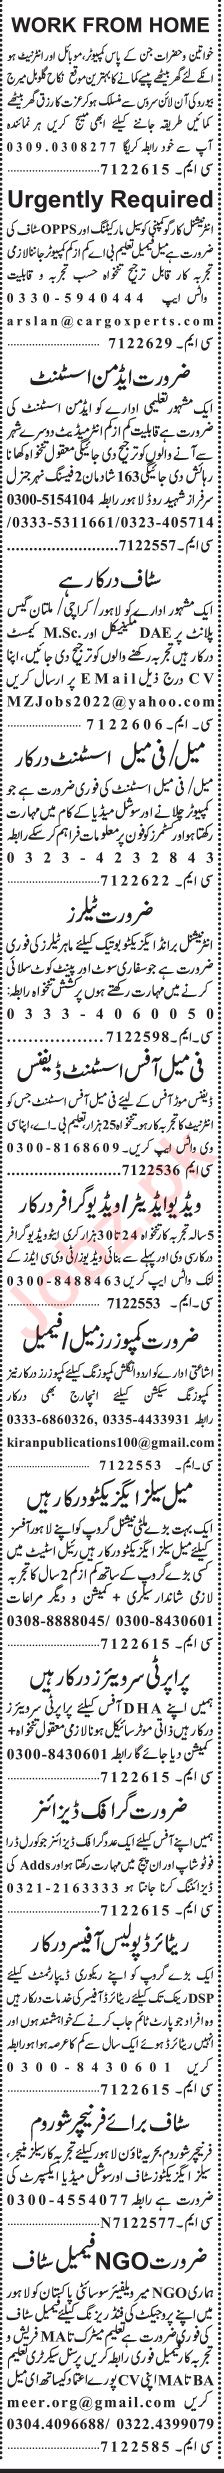 WORK FROM HOME
خواتین و حضرات جن کے پاس کمپیوٹر، موبائل اور انٹرنیٹ ہو
انکے لئے گھر بیٹھے پیسے کمانے کا بہترین موقع نکاح گلوبل میرج
بیورو کی آن لائن سروس سے منسلک ہو کر عزت کا رزق گھر بیٹھے
کمائیں طریقہ جاننے کیلئے ابھی میسج کریں ہر نمائندہ
آپ سے خود رابطہ کریگا 0309.0308277
سی ایم۔ 7122615
Urgently Required
انٹرنیشنل کارگو کمپنی کو سیل مارکیٹنگ اور OPPS سٹاف کی
ضرورت ہے میل فیمیل تعلیم بی اے کم از کم کمپیوٹر جاننا لازمی
تجربہ کار قابل ترجیح تنخواہ حسب تجربہ و قابلیت
واٹس ایپ 0330-5940444
arslan@cargoxperts.com
سی ایم۔ 7122629
ضرورت ایڈمن اسسٹنٹ
ایک مشہور تعلیمی ادارے کو ایڈمن اسسٹنٹ کی
ضرورت ہے قابلیت کم از کم انٹرمیڈیٹ دوسرے شہر
سے آنے والوں کو ترجیح دی جائیگی معقول تنخواہ کھانا
رہائش دی جائیگی 163 شادمان 2 فیسنگ شہر جنرل
سرفراز شہید روڈ لاہور رابطہ 0300-5154104
/0333-5311661/0323-405714
سی ایم۔ 7122557
سٹاف درکار ہے
ایک مشہور ادارے کو لاہور/ کراچی/ ملتان گیس
پلانٹ پر DAE مکینیکل اور M.Sc. کیمسٹ
درکار ہیں تجربہ رکھنے والوں کو ترجیح دی جائیں، اپنا
CV درج ذیل EMail پر ارسال کریں
MZJobs2022@yahoo.com
سی۔ ایم۔ 7122606
میل/ فی میل اسسٹنٹ درکار
میل/ فی میل اسسٹنٹ کی فوری ضرورت ہے جو
کمپیوٹر چلانے اور سوشل میڈیا کے کام میں مہارت
رکھتا ہو اور کسٹمرز کو فون پر معلومات فراہم کر سکے رابطہ
0323-4232843
سی ایم۔ 7122622
ضرورت ٹیلرز
انٹرنیشنل برانڈ ایگزیکٹو بوتیک کیلئے ماہر ٹیلرز کی فوری
ضرورت ہے جو سفاری سوٹ اور پینٹ کوٹ سلائی
کرنے میں مہارت رکھتے ہوں پرکشش تنخواہ رابطہ:
0333-4060050
سی ایم۔ 7122598
فی میل آفس اسسٹنٹ ڈیفنس
ڈیفنس موڑ آفس کے لیئے فی میل آفس اسسٹنٹ جس کو
انٹرنیٹ کا تجربہ کار ہو۔ تنخواہ 25 ہزار تعلیم بی۔اے، اپنا سی
وی واٹس ایپ کریں۔ 0300-8168609
سی ایم۔ 7122536
ویڈیو ایڈیٹر/ ویڈیو گرافر درکار
5 سالہ تجربہ کار تنخواہ 24 تا 30 ہزار کری ایٹو ویڈیو گرافر
درکار سی وی اور پہلے سے بنائی ویڈیوز/ ٹی وی سی ایڈز کے
لنک واٹس ایپ کریں 0300-8488463
سی۔ ایم۔ 7122553
ضرورت کمپوزرز میل/ فیمیل
اشاعتی ادارے کو اردو انگلش کمپوزنگ کیلئے کمپوزرز درکار نیز
کمپوزنگ سیکشن کیلئے انچارج بھی درکار
رابطہ 0333-6860326, 0335-4433931
kiranpublications100@gmail.com
سی۔ ایم۔ 7122553
میل سیلز ایگزیکٹو درکار ہیں
ایک بہت بڑے ملٹی نیشنل گروپ کو اپنے لاہور آفسز
کیلئے میل سیلز ایگزیکٹو درکار ہیں رئیل اسٹیٹ میں
کسی بڑے گروپ کے ساتھ کم از کم 2 سال کا تجربہ
لازمی شاندار سیلری + کمیشن و دیگر مراعات
0308-8888045/ 0300-8430601
سی ایم۔ 7122615
پراپرٹی سرویئرز درکار ہیں
ہمیں اپنے DHA آفس کیلئے پراپرٹی سرویئرز
درکار ہیں ذاتی موٹر سائیکل ہونا لازمی معقول تنخواہ +
کمیشن دیا جائے گا رابطہ 0300-8430601
سی ایم۔ 7122615
ضرورت گرافک ڈیزائنر
ہمیں اپنے آفس کیلئے ایک عدد گرافک ڈیزائنر جو کورل ڈرا
فوٹو شاپ اور ان پیج میں مہارت رکھتا ہو اور Adds کی
ڈیزائننگ کرنا جانتا ہو 0321-2163333
سی ایم۔ 7122615
ریٹائرڈ پولیس آفیسر درکار
ایک بڑے گروپ کو اپنے ریکوری ڈیپارٹمنٹ کیلئے
DSP رینک تک کیلئے ریٹائرڈ آفیسر کی خدمات درکار ہیں
وہ افراد جو پارٹ ٹائم جاب کرنے کے خواہشمند ہوں اور
انہیں ریٹائرڈ ہوئے ایک سال سے کم کا عرصہ ہوا ہو رابطہ
کریں 0300-8430601
سی ایم۔ 7122615
سٹاف برائے فرنیچر شوروم
فرنیچر شوروم بحریہ ٹاؤن لاہور کیلئے تجربہ کار سیلز منیجر،
سیلز ایگزیکٹیوز سٹاف اور سوشل میڈیا ایکسپرٹ کی
ضرورت ہے رابطہ 0300-4554077
سی ایم۔ N7122577
ضرورت NGO فیمیل سٹاف
ہماری NGO میر ویلفیئر سوسائٹی پاکستان کو لاہور
میں اپنے پروجیکٹ کی فنڈ ریزنگ کیلئے فیمیل سٹاف
کی فوری ضرورت ہے تعلیم میٹرک تا MA فریش و
تجربہ کار فیمیل فوری رابطہ کریں پرسنل سیکرٹری تعلیم
BA تا MA اپنی CV پورے اعتماد کیساتھ ای میل
کریں meer.org@gmail.com
0304.4096688/ 0322.4399079
سی ایم۔ 7122585